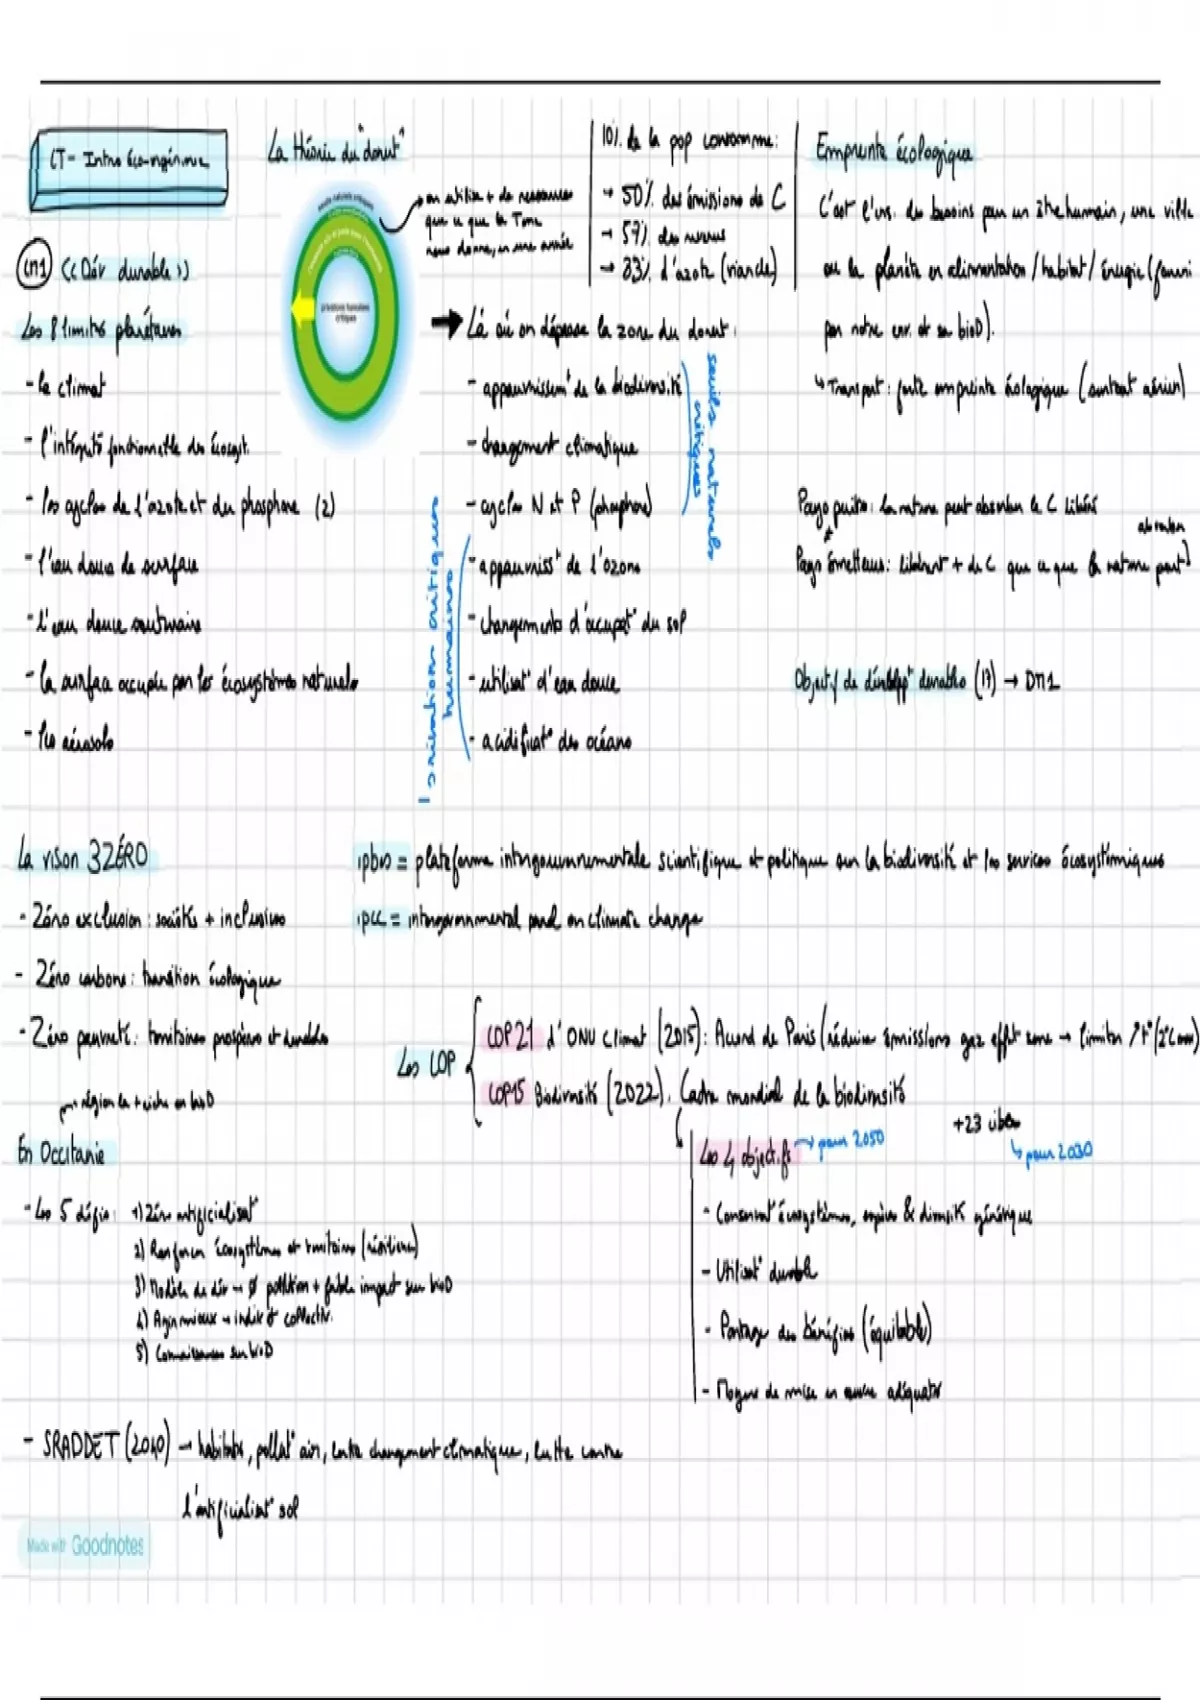 CT- Intro éco-ingénierie
CM1 << Dév durable >>
Les 8 limites planétaires
- le climat
- l'intégrité fonctionnelle des écosyst.
- les cycles de l'azote et du phosphore (2)
- l'eau douce de surface
- l'eau douce souterraine
- la surface occupée par les écosystèmes naturels
- les aérosols
La théorie du "donut"
privations humaines
critiques
→ on utilise + de ressources
que ce que la Terre
nous donne, en une année
10% de la pop consomme:
→ 50% des émissions de C
→ 57% des revenus
→ 33% d'azote (viande)
→ Là où on dépasse la zone du donut:
- appauvrissemt de la biodiversité
- changement climatique
- cycles N et P (phosphore)
- appauvrisst de l'ozone
- changements d'occupat° du sol
- utilisat° d'eau douce
- acidificat° des océans
seuils naturels
critiques
privations critiques
humaines
Empreinte écologique
C'est l'ens. des besoins pour un être humain, une ville
ou la planète en alimentation / habitat / énergie (fourni
par notre env. et sa bioD).
↳ Transport: forte empreinte écologique (surtout aérien)
Pays puits: la nature peut absorber le C libéré
≠
Pays émetteurs: libèrent + de C que ce que la nature peut
absorber
Objectif de développt durables (17) → DM1
La vison 3ZÉRO
- Zéro exclusion: sociétés + inclusives
- Zéro carbone: transition écologique
- Zéro pauvreté: territoires prospères et durables
ipbes = plateforme intergouvernementale scientifique et politique sur la biodiversité et les services écosystémiques
ipcc = intergovernmental panel on climate change
Les COP
COP21 d'ONU Climat (2015): Accord de Paris (réduire émissions gaz effet serre → limiter ↗ t° (2°C max)
COP15 Biodiversité (2022). Cadre mondial de la biodiversité
+23 cibles
↳ pour 2030
Les 4 objectifs → pour 2050
- Conservat° écosystèmes, espèces & diversité génétique
- Utilisat° durable
- Partage des bénéfices (équitable)
- Moyens de mise en œuvre adéquats
région la + riche en bioD
En Occitanie
- Les 5 défis: 1) Zéro artificialisat°
2) Renforcer écosystèmes et territoires (résilience)
3) Modèle de dév → ∅ pollution + faible impact sur bioD
4) Agir mieux → indiv et collectiv.
5) Connaissances sur bioD
- SRADDET (2040) → habitats, pollut° air, lutte changement climatique, lutte contre
l'artificialisat° sol
Made with Goodnotes